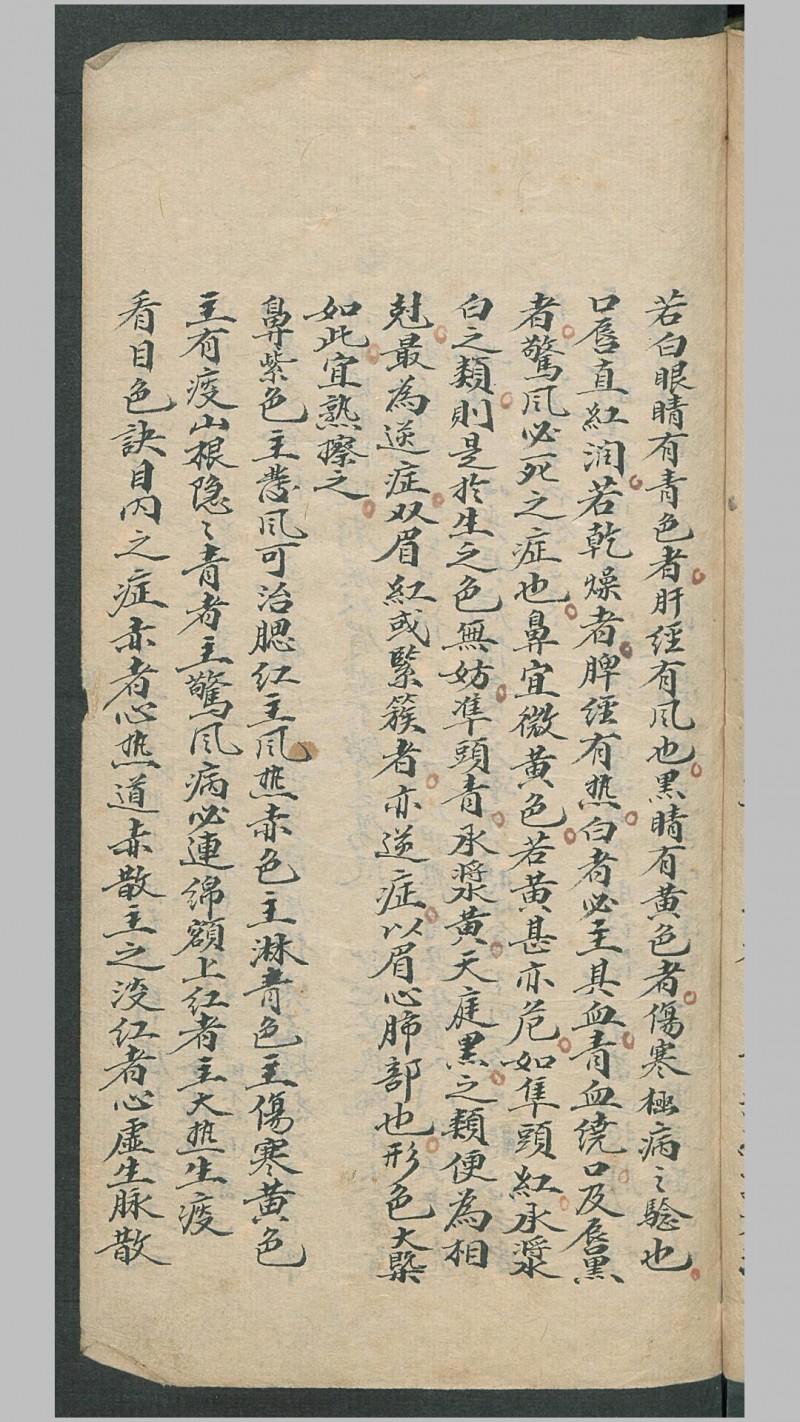 若白眼睛有青色者肝經有风也黑睛有黄色者傷寒極病之驗也
口唇直紅润若乾燥者脾經有热白者必主具血青血繞口及唇黑
者驚风必死之症也鼻宜微黄色若黄甚亦危如隼頭紅承漿
白之類則是於生之色無妨隼頭青承漿黄天庭黑之類便為相
尅最為逆症双眉紅或緊簇者亦逆症以眉心肺部也形色大槩
如此宜熟擦之
鼻紫色主發风可治腮红主风热赤色主淋青色主傷寒黄色
主有疫山根隐〻青者主驚风病必連綿額上红者主大热生疫
看目色訣目内之症赤者心热道赤散主之淡红者心虛生脉散